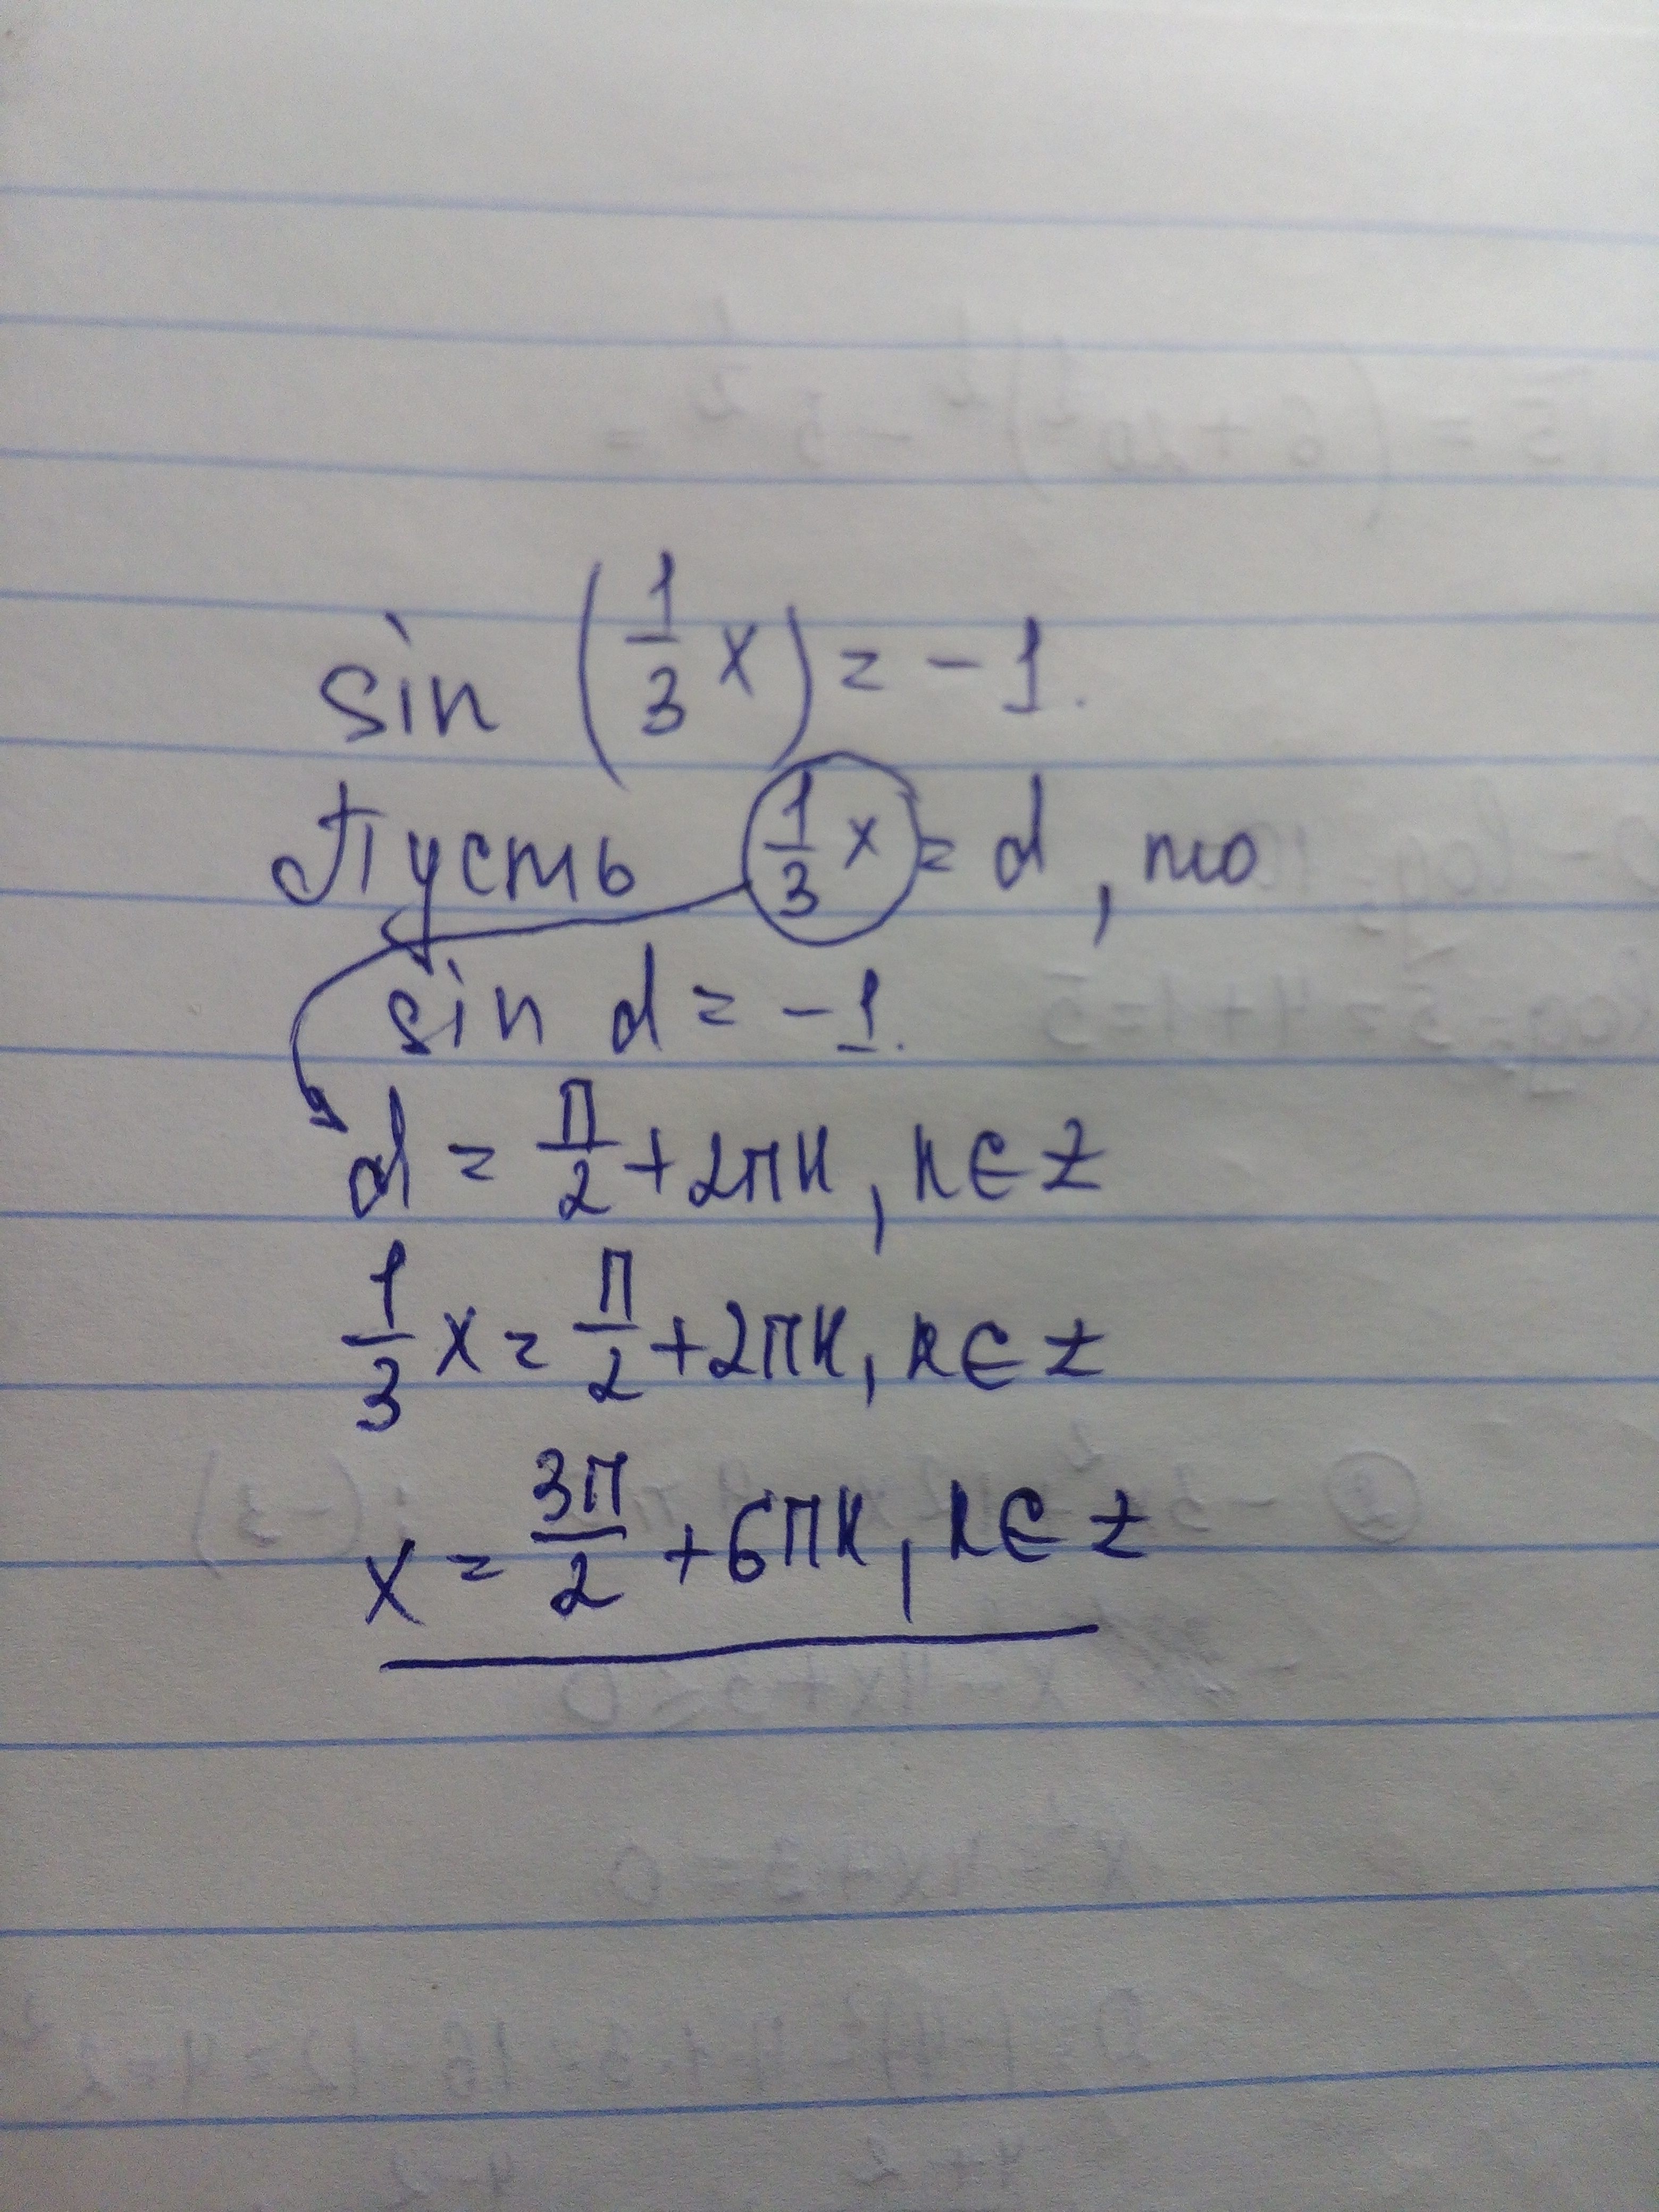 sin (1/3 x) = -1.
Пусть 1/3 x = α, то
sin α = -1.
α = π/2 + 2πк, к ∈ Z
1/3 x = π/2 + 2πк, к ∈ Z
x = 3π/2 + 6πк, к ∈ Z